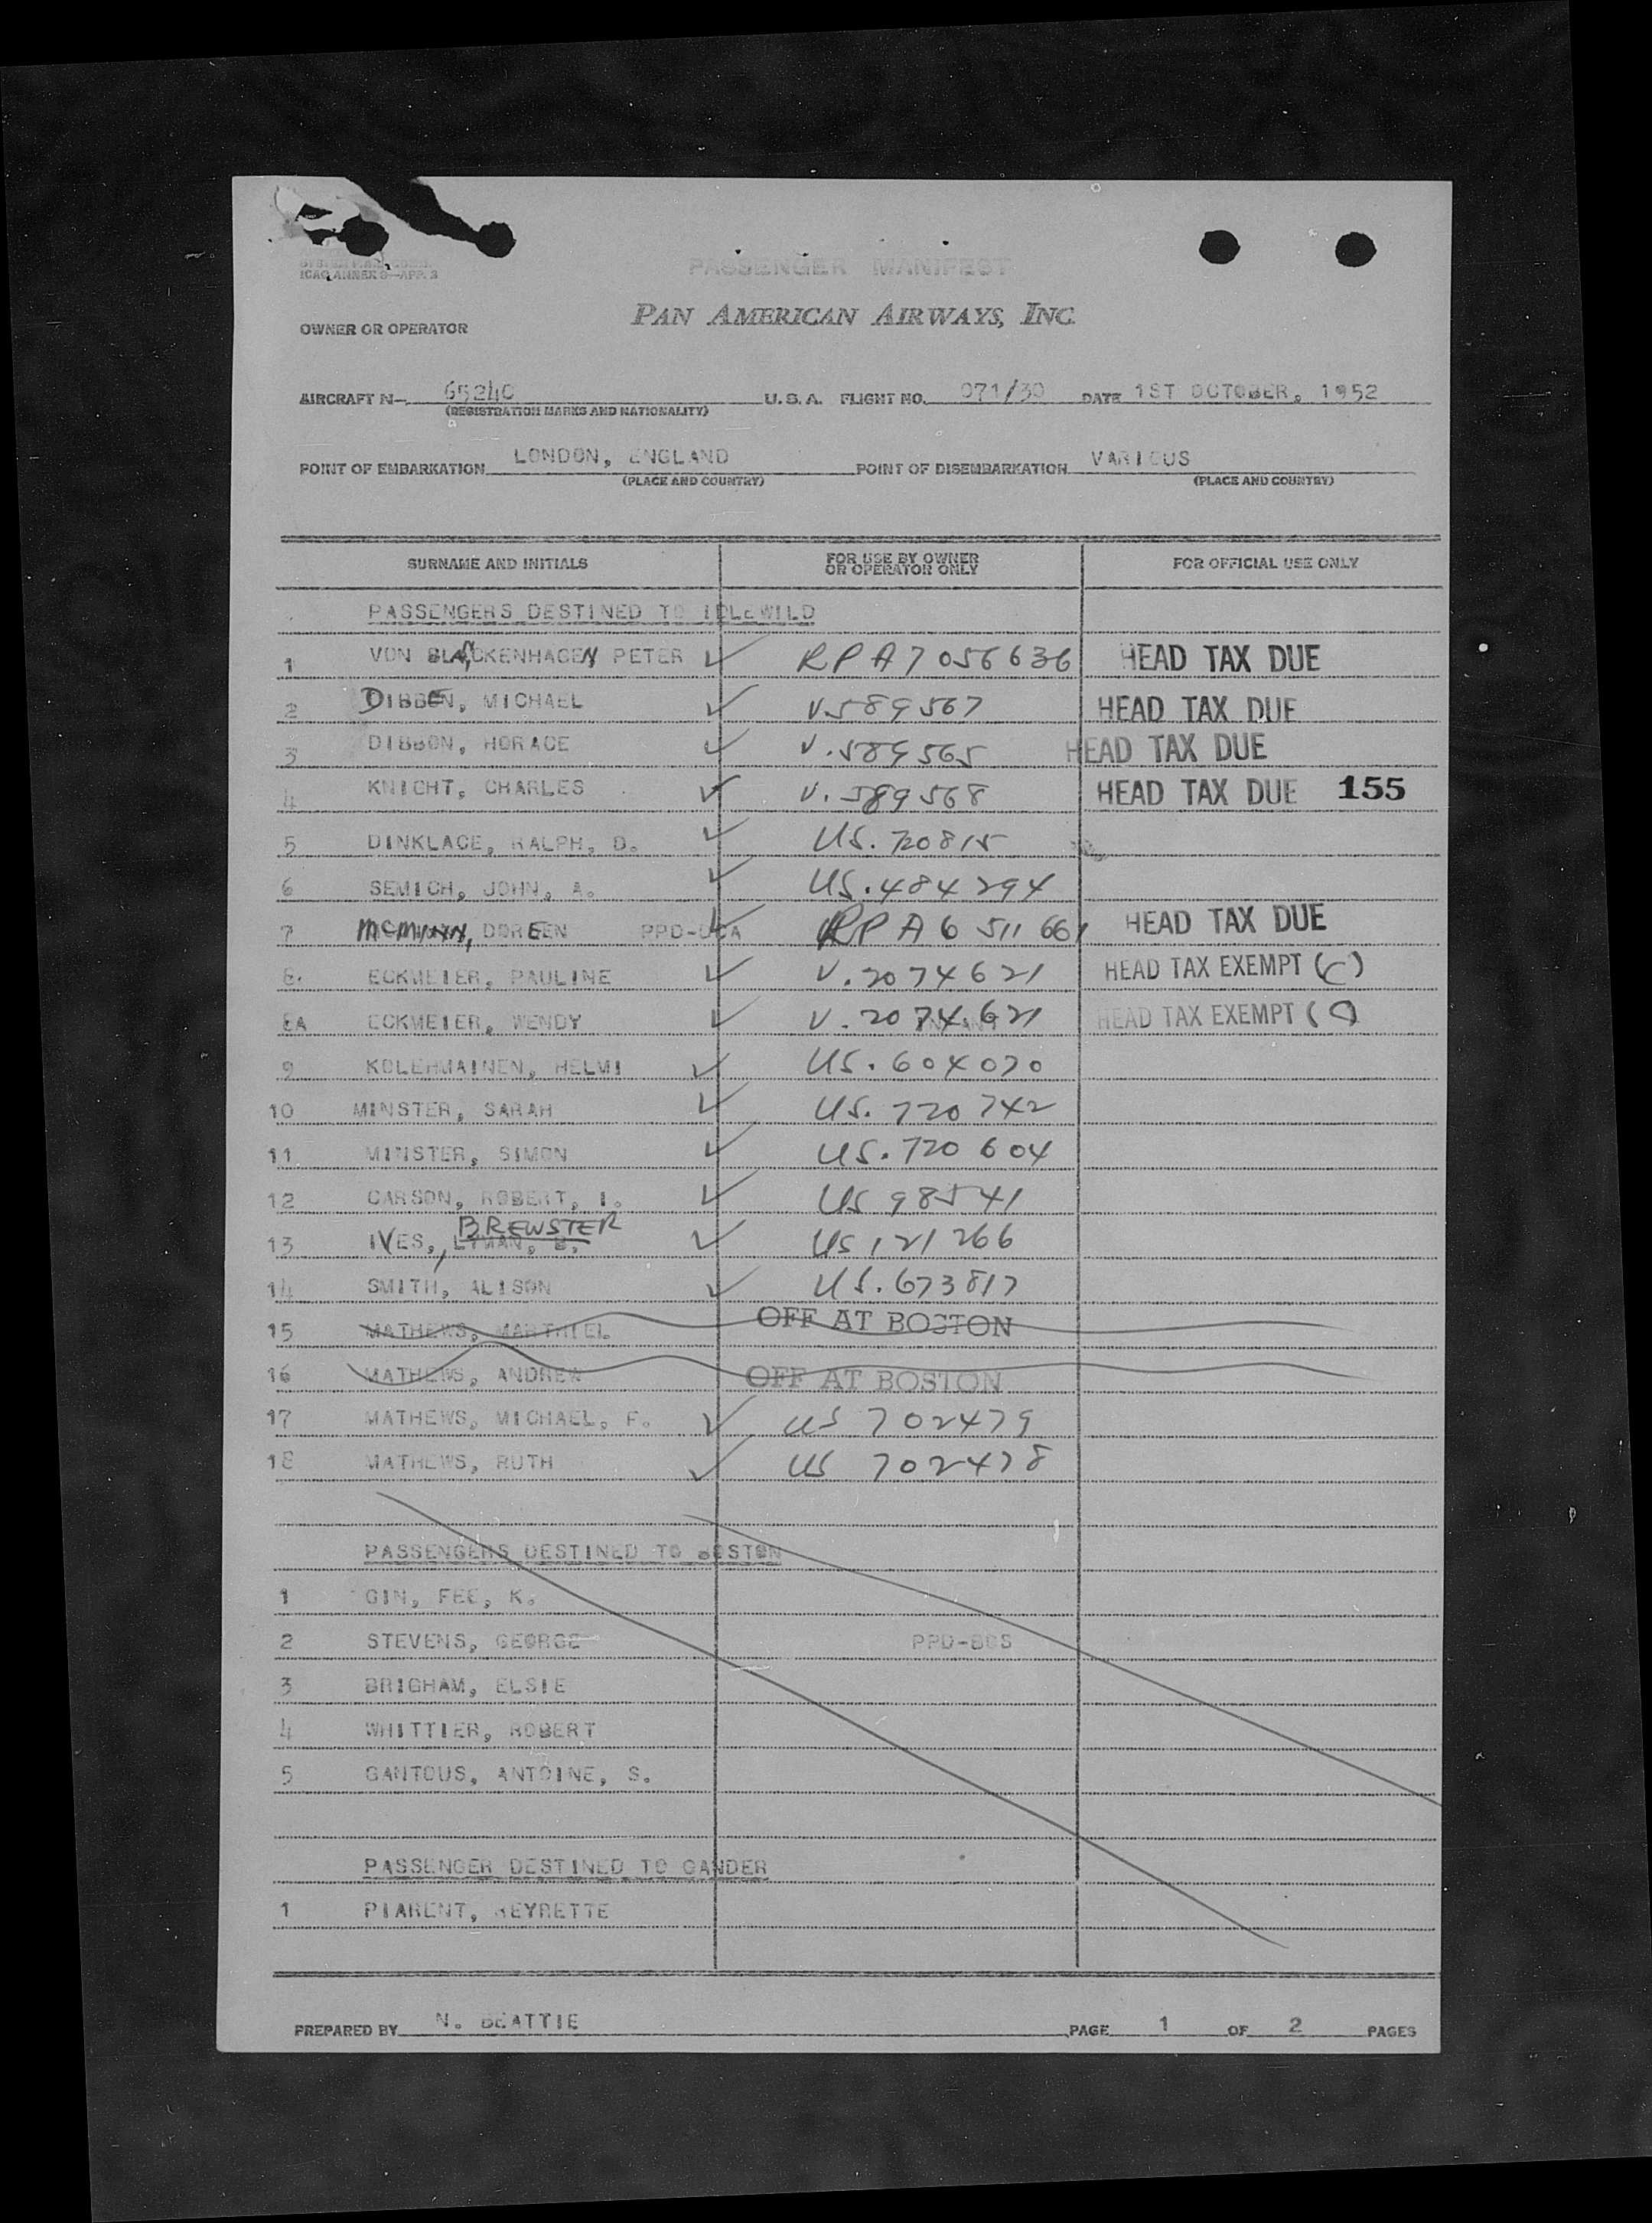 ICAO ANNEX 9—APP. 3
PASSENGER MANIFEST
OWNER OR OPERATOR PAN AMERICAN AIRWAYS, INC.
AIRCRAFT N— 65240 U.S.A. FLIGHT NO. 071/30 DATE 1ST OCTOBER, 1952
(REGISTRATION MARKS AND NATIONALITY)
POINT OF EMBARKATION LONDON, ENGLAND POINT OF DISEMBARKATION VARIOUS
(PLACE AND COUNTRY) (PLACE AND COUNTRY)
SURNAME AND INITIALS FOR USE BY OWNER OR OPERATOR ONLY FOR OFFICIAL USE ONLY
PASSENGERS DESTINED TO IDLEWILD
1 VON BLANCKENHAGEN PETER ✓ RPA7056636 HEAD TAX DUE
2 DIBBEN, MICHAEL ✓ V.589567 HEAD TAX DUE
3 DIBBON, HORACE ✓ V.589565 HEAD TAX DUE
4 KNIGHT, CHARLES ✓ V.589568 HEAD TAX DUE 155
5 DINKLAGE, RALPH, D. ✓ US.720815
6 SEMICH, JOHN, A. ✓ US.484294
7 DOREEN ✓ RPA6511661 HEAD TAX DUE
8. ECKMEIER, PAULINE ✓ V.2074621 HEAD TAX EXEMPT (C)
8A ECKMEIER, WENDY ✓ INFANT V.2074621 HEAD TAX EXEMPT (C)
9 KOLEHMAINEN, HELMI ✓ US.604070
10 MINSTER, SARAH ✓ US.720742
11 MINSTER, SIMON ✓ US.720604
12 CARSON, ROBERT, I. ✓ US 98541
BREWSTER
13 IVES, LYMAN, B. ✓ US 121266
14 SMITH, ALISON ✓ US.673817
15 MATHEWS, MARTHIEL OFF AT BOSTON
16 MATHEWS, ANDREW OFF AT BOSTON
17 MATHEWS, MICHAEL, F. ✓ US 702479
18 MATHEWS, RUTH ✓ US 702478
PASSENGERS DESTINED TO BOSTON
1 GIN, FEE, K.
2 STEVENS, GEORGE PPD-BOS
3 BRIGHAM, ELSIE
4 WHITTIER, ROBERT
5 GANTOUS, ANTOINE, S.
PASSENGER DESTINED TO GANDER
1 PIARENT, REYRETTE
PREPARED BY N. BEATTIE PAGE 1 OF 2 PAGES